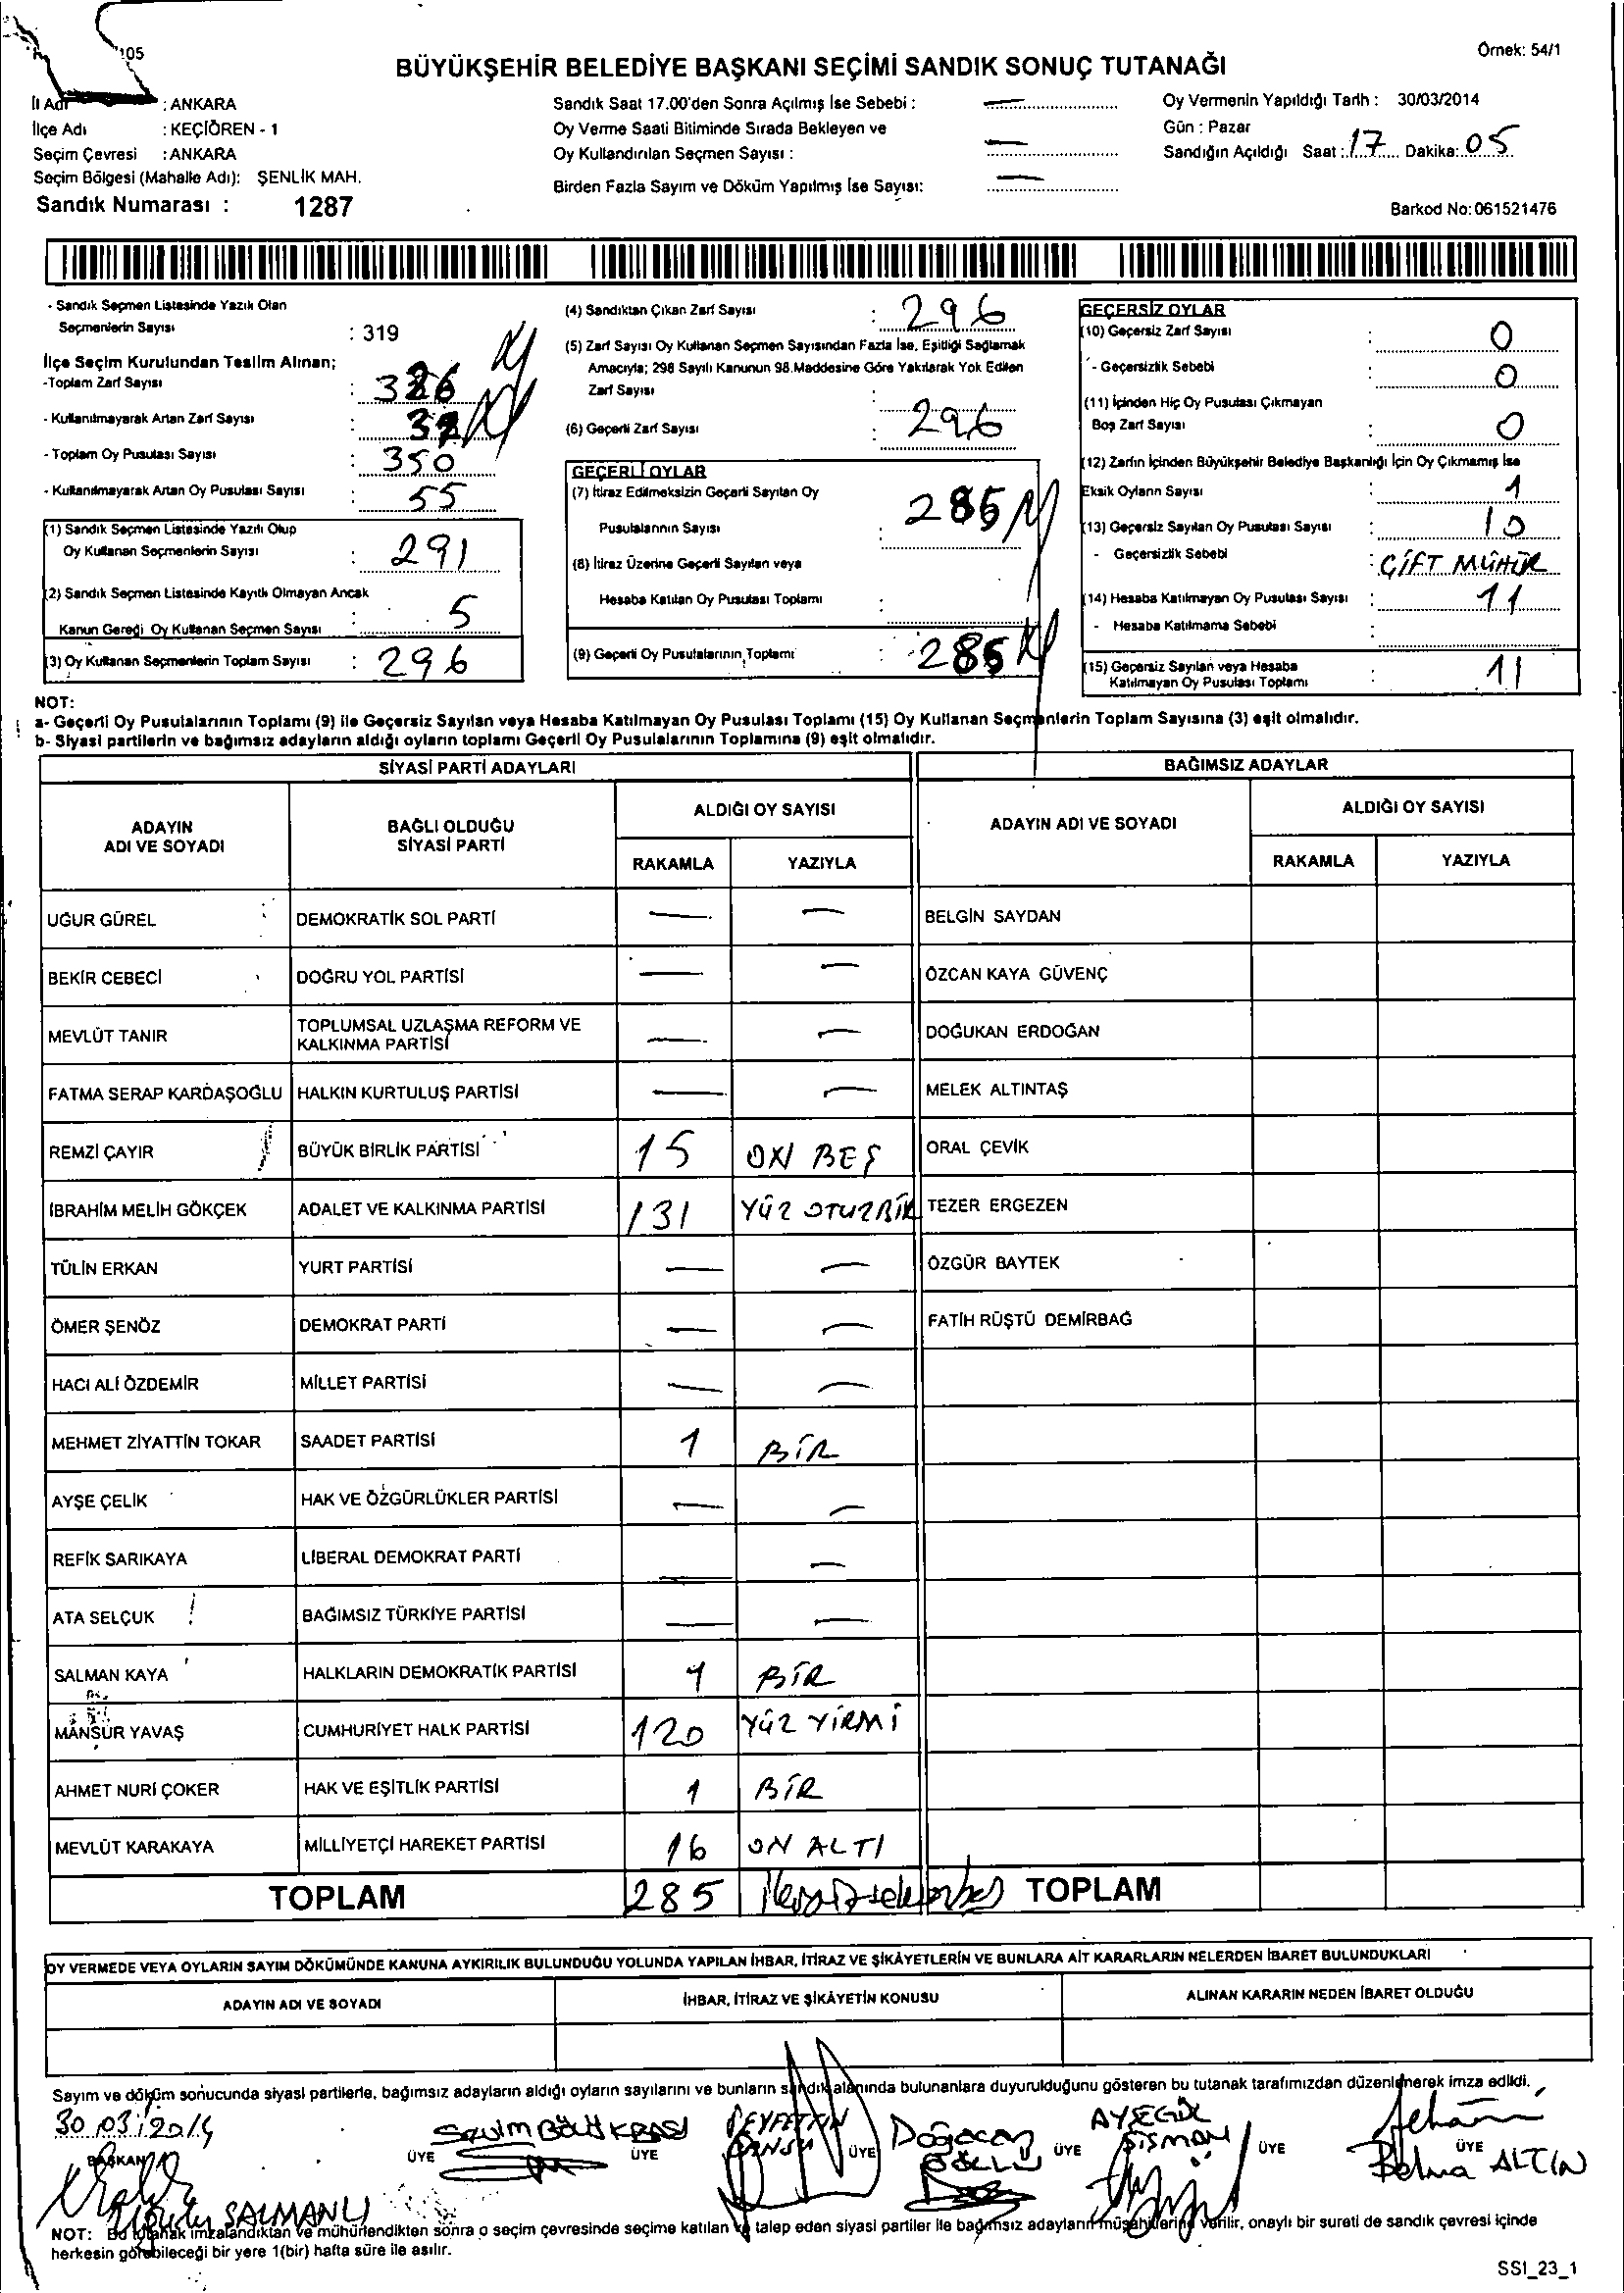 105
Örnek: 54/1
BÜYÜKŞEHİR BELEDİYE BAŞKANI SEÇİMİ SANDIK SONUÇ TUTANAĞI
İl Adı : ANKARA
İlçe Adı : KEÇİÖREN - 1
Seçim Çevresi : ANKARA
Seçim Bölgesi (Mahalle Adı): ŞENLİK MAH.
Sandık Numarası : 1287
Sandık Saat 17.00'den Sonra Açılmış İse Sebebi : —
Oy Verme Saati Bitiminde Sırada Bekleyen ve
Oy Kullandırılan Seçmen Sayısı : —
Birden Fazla Sayım ve Döküm Yapılmış İse Sayısı: —
Oy Vermenin Yapıldığı Tarih : 30/03/2014
Gün : Pazar
Sandığın Açıldığı Saat : 17 Dakika: 05
Barkod No: 061521476
- Sandık Seçmen Listesinde Yazılı Olan
Seçmenlerin Sayısı : 319
İlçe Seçim Kurulundan Teslim Alınan;
-Toplam Zarf Sayısı :
- Kullanılmayarak Artan Zarf Sayısı :
- Toplam Oy Pusulası Sayısı : 350
- Kullanılmayarak Artan Oy Pusulası Sayısı : 55
(1) Sandık Seçmen Listesinde Yazılı Olup
Oy Kullanan Seçmenlerin Sayısı : 291
(2) Sandık Seçmen Listesinde Kayıtlı Olmayan Ancak
Kanun Gereği Oy Kullanan Seçmen Sayısı : 5
(3) Oy Kullanan Seçmenlerin Toplam Sayısı : 296
(4) Sandıktan Çıkan Zarf Sayısı : 296
(5) Zarf Sayısı Oy Kullanan Seçmen Sayısından Fazla İse, Eşitliği Sağlamak
Amacıyla; 298 Sayılı Kanunun 98.Maddesine Göre Yakılarak Yok Edilen
Zarf Sayısı :
(6) Geçerli Zarf Sayısı : 296
GEÇERLİ OYLAR
(7) İtiraz Edilmeksizin Geçerli Sayılan Oy
Pusulalarının Sayısı : 285
(8) İtiraz Üzerine Geçerli Sayılan veya
Hesaba Katılan Oy Pusulası Toplamı :
(9) Geçerli Oy Pusulalarının Toplamı : 285
GEÇERSİZ OYLAR
(10) Geçersiz Zarf Sayısı : 0
- Geçersizlik Sebebi : 0
(11) İçinden Hiç Oy Pusulası Çıkmayan
Boş Zarf Sayısı : 0
(12) Zarfın İçinden Büyükşehir Belediye Başkanlığı İçin Oy Çıkmamış İse
Eksik Oyların Sayısı : 1
(13) Geçersiz Sayılan Oy Pusulası Sayısı : 10
- Geçersizlik Sebebi : ÇİFT MÜHÜR
(14) Hesaba Katılmayan Oy Pusulası Sayısı : 11
- Hesaba Katılmama Sebebi :
(15) Geçersiz Sayılan veya Hesaba
Katılmayan Oy Pusulası Toplamı : 11
NOT:
a- Geçerli Oy Pusulalarının Toplamı (9) ile Geçersiz Sayılan veya Hesaba Katılmayan Oy Pusulası Toplamı (15) Oy Kullanan Seçmenlerin Toplam Sayısına (3) eşit olmalıdır.
b- Siyasi partilerin ve bağımsız adayların aldığı oyların toplamı Geçerli Oy Pusulalarının Toplamına (9) eşit olmalıdır.
SİYASİ PARTİ ADAYLARI BAĞIMSIZ ADAYLAR
ADAYIN ADI VE SOYADI BAĞLI OLDUĞU SİYASİ PARTİ ALDIĞI OY SAYISI ADAYIN ADI VE SOYADI ALDIĞI OY SAYISI
RAKAMLA YAZIYLA RAKAMLA YAZIYLA
UĞUR GÜREL DEMOKRATİK SOL PARTİ — — BELGİN SAYDAN
BEKİR CEBECİ DOĞRU YOL PARTİSİ — — ÖZCAN KAYA GÜVENÇ
MEVLÜT TANIR TOPLUMSAL UZLAŞMA REFORM VE KALKINMA PARTİSİ — — DOĞUKAN ERDOĞAN
FATMA SERAP KARDAŞOĞLU HALKIN KURTULUŞ PARTİSİ — — MELEK ALTINTAŞ
REMZİ ÇAYIR BÜYÜK BİRLİK PARTİSİ 15 ON BEŞ ORAL ÇEVİK
İBRAHİM MELİH GÖKÇEK ADALET VE KALKINMA PARTİSİ 131 YÜZ OTUZBİR TEZER ERGEZEN
TÜLİN ERKAN YURT PARTİSİ — — ÖZGÜR BAYTEK
ÖMER ŞENÖZ DEMOKRAT PARTİ — — FATİH RÜŞTÜ DEMİRBAĞ
HACI ALİ ÖZDEMİR MİLLET PARTİSİ — —
MEHMET ZİYATTİN TOKAR SAADET PARTİSİ 1 BİR
AYŞE ÇELİK HAK VE ÖZGÜRLÜKLER PARTİSİ — —
REFİK SARIKAYA LİBERAL DEMOKRAT PARTİ — —
ATA SELÇUK BAĞIMSIZ TÜRKİYE PARTİSİ — —
SALMAN KAYA HALKLARIN DEMOKRATİK PARTİSİ 1 BİR
MANSUR YAVAŞ CUMHURİYET HALK PARTİSİ 120 YÜZ YİRMİ
AHMET NURİ ÇOKER HAK VE EŞİTLİK PARTİSİ 1 BİR
MEVLÜT KARAKAYA MİLLİYETÇİ HAREKET PARTİSİ 16 ON ALTI
TOPLAM 285 TOPLAM
OY VERMEDE VEYA OYLARIN SAYIM DÖKÜMÜNDE KANUNA AYKIRILIK BULUNDUĞU YOLUNDA YAPILAN İHBAR, İTİRAZ VE ŞİKÂYETLERİN VE BUNLARA AİT KARARLARIN NELERDEN İBARET BULUNDUKLARI
ADAYIN ADI VE SOYADI İHBAR, İTİRAZ VE ŞİKÂYETİN KONUSU ALINAN KARARIN NEDEN İBARET OLDUĞU
Sayım ve döküm sonucunda siyasi partilerle, bağımsız adayların aldığı oyların sayılarını ve bunların sandık alanında bulunanlara duyurulduğunu gösteren bu tutanak tarafımızdan düzenlenerek imza edildi.
30.03.2014
BAŞKAN ÜYE ÜYE ÜYE ÜYE ÜYE ÜYE
SALMANLI Doğacan AYŞEGÜL ŞİŞMAN Belma ALTIN
NOT: Bu tutanak imzalandıktan ve mühürlendikten sonra o seçim çevresinde seçime katılan ve talep eden siyasi partiler ile bağımsız adayların müşahitlerine verilir, onaylı bir sureti de sandık çevresi içinde
herkesin görebileceği bir yere 1(bir) hafta süre ile asılır.
SSI_23_1